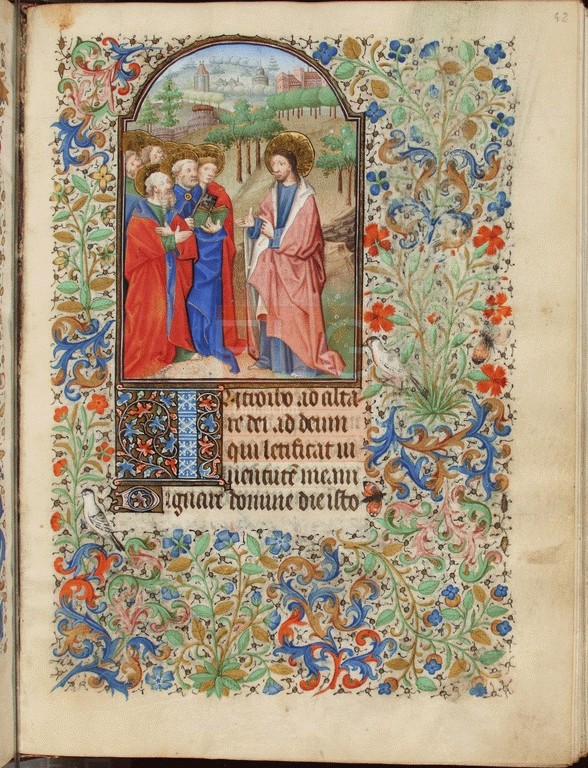 INtroibo ad alta
re dei. ad deum
qui letificat iu
uentutē meam
Dignare domine die isto